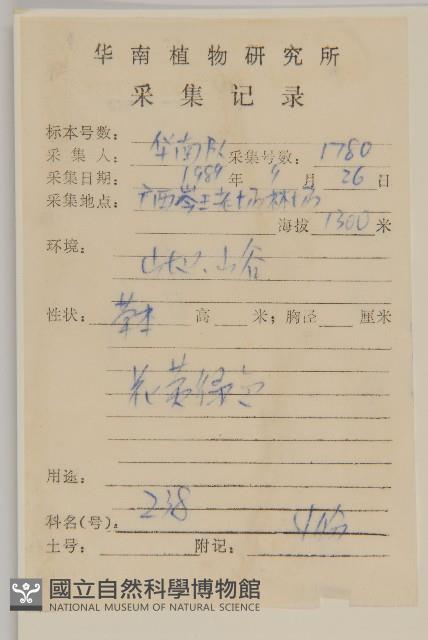 华南植物研究所
采集记录
标本号数：
采集人：华南队 采集号数：1780
采集日期：1989年9月26日
采集地点：广西岑王老山林场
海拔1300米
环境：
山地、山谷
性状：草本 高 米；胸径 厘米
花黄绿色
用途：
238
科名(号)：
土号： 附记：
國立自然科學博物館
NATIONAL MUSEUM OF NATURAL SCIENCE